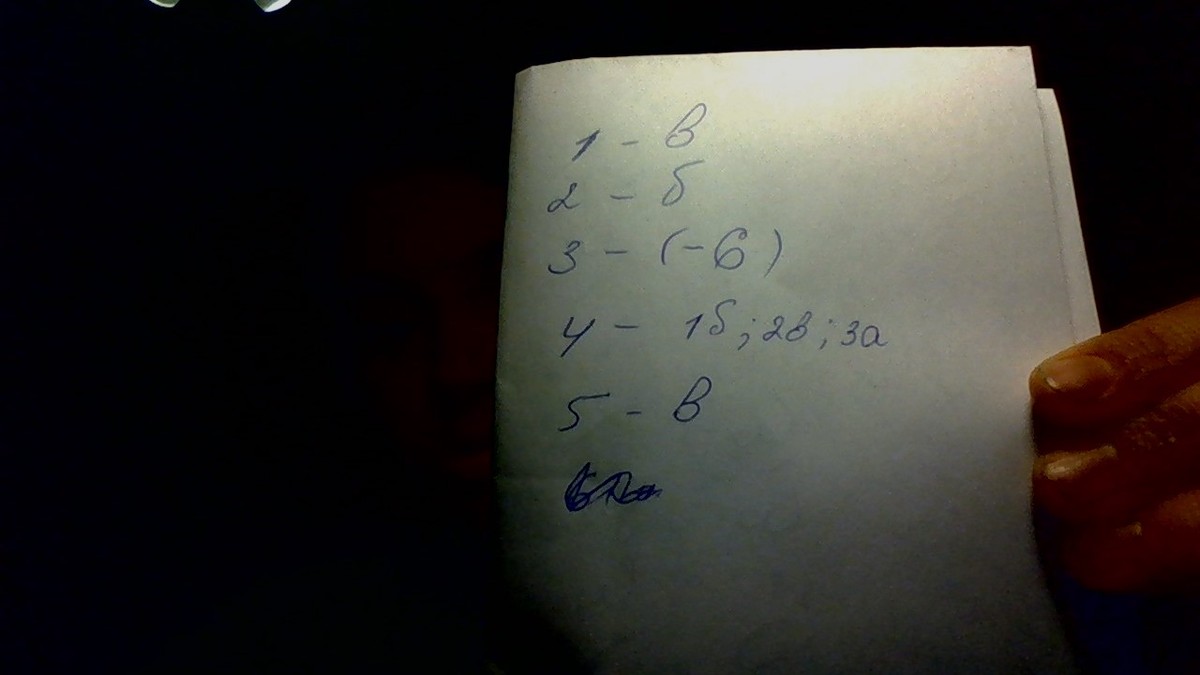 1 - в
2 - б
3 - (-6)
4 - 1б; 2в; 3а
5 - в